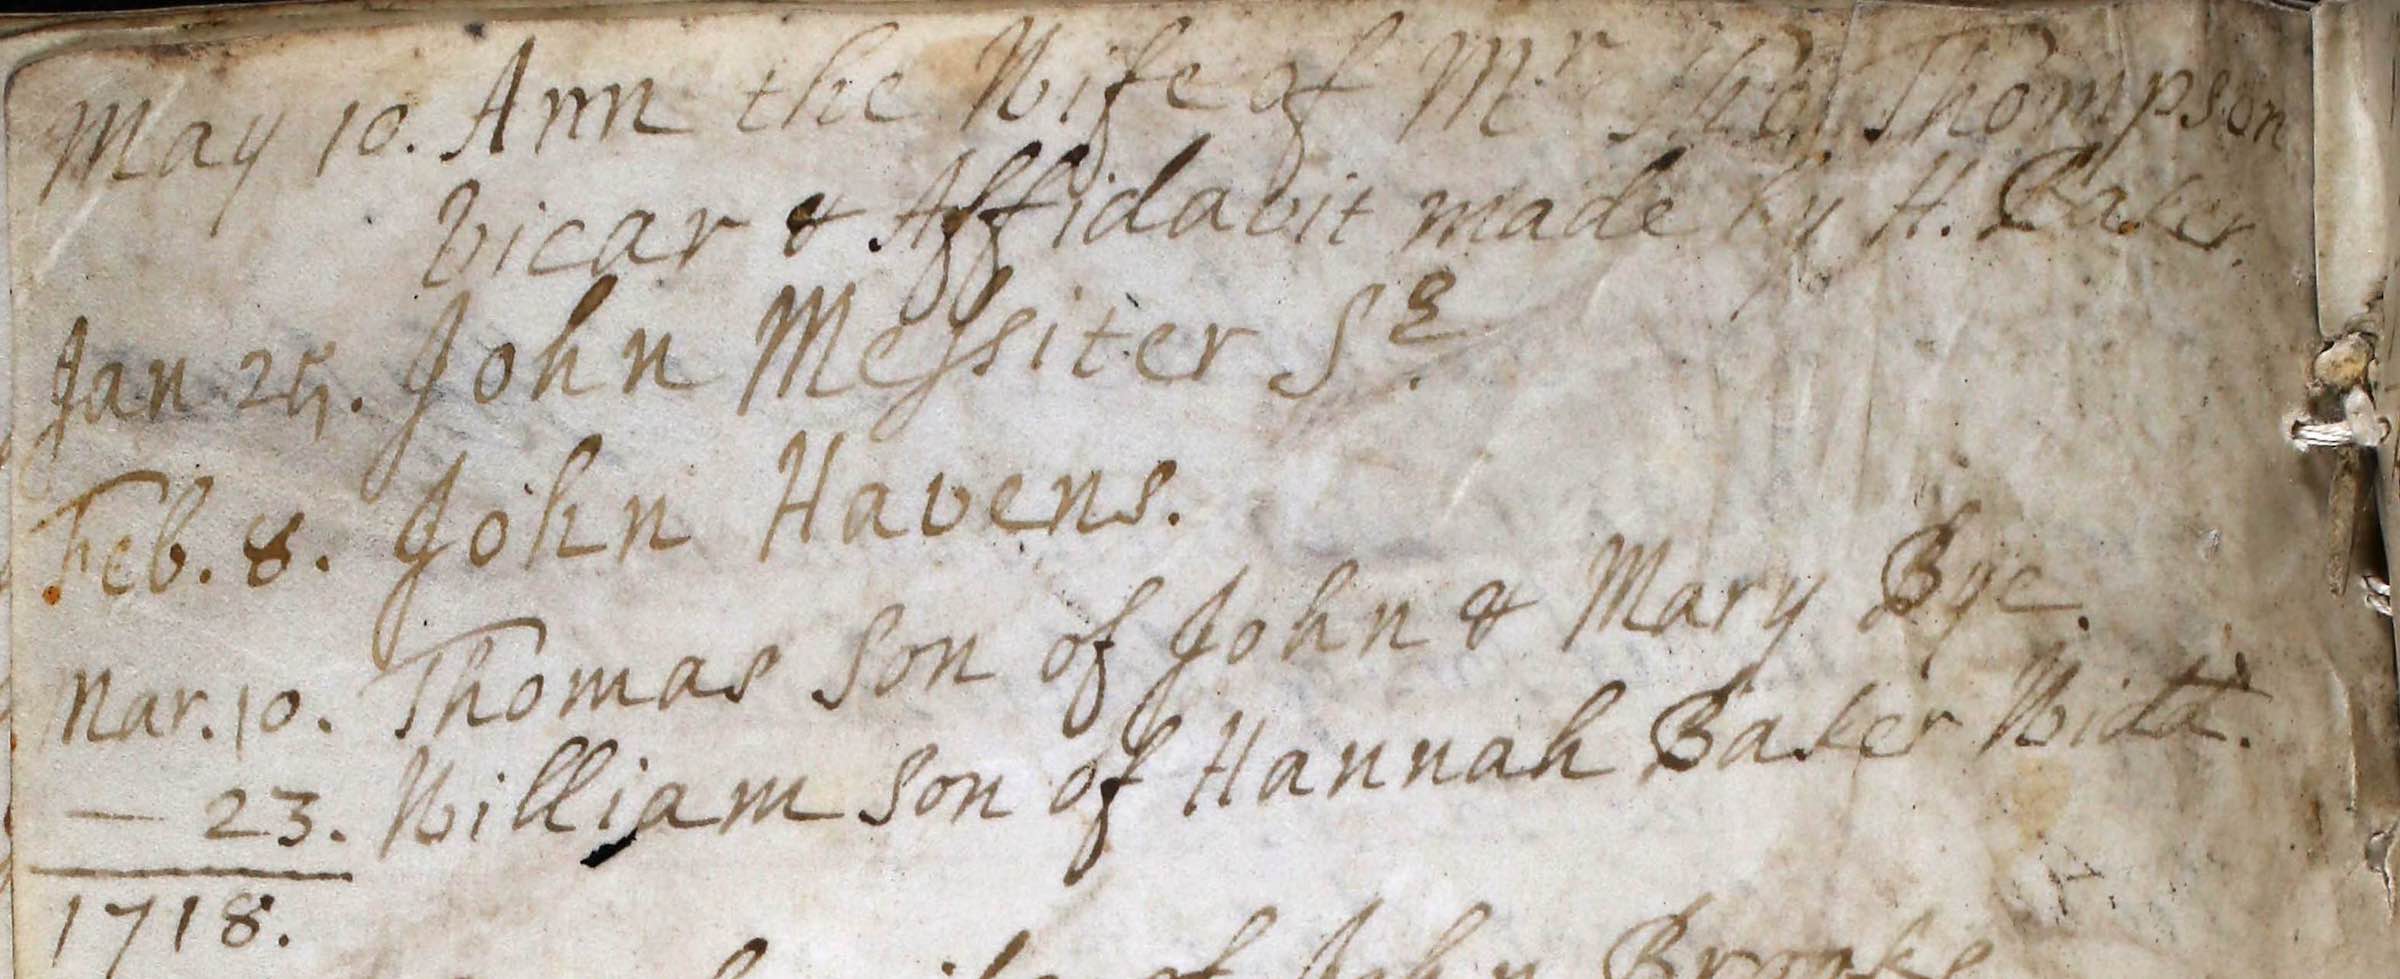 May 10. Ann the Wife of Mr Tho: Thompson
Vicar & Affidavit made by H. Baker.
Jan 25. John Messiter Sr.
Feb. 8. John Havens.
Mar. 10. Thomas son of John & Mary Bye.
— 23. William son of Hannah Baker Widd.
1718.
wife of John Brooks